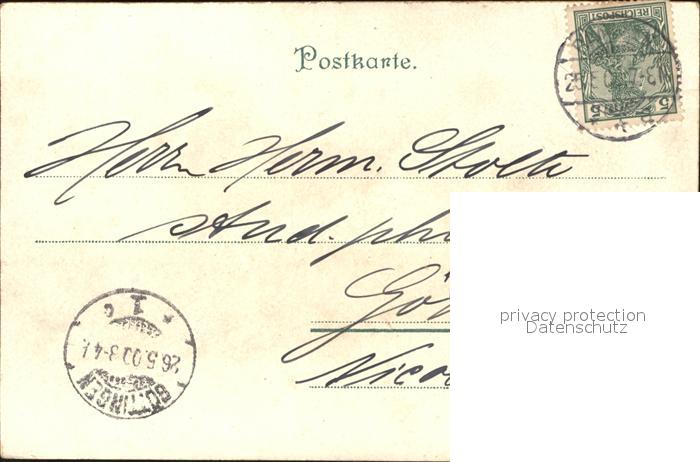 Postkarte.
REICHSPOST
5 5
Herrn Herm. Stolte
stud. ph
Gö
Nico
GÖTTINGEN
26.5.00.3-4.N.
1 c
privacy protection
Datenschutz